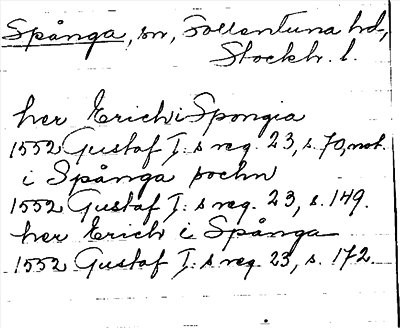 Spånga, sn, Sollentuna hd,
Stockh. l.
her Erich i Spongia
1552 Gustaf I:s reg. 23, s. 70, not.
i Spånga sochn
1552 Gustaf I:s reg. 23, s. 149.
her Erich i Spånga
1552 Gustaf I:s reg. 23, s. 172.